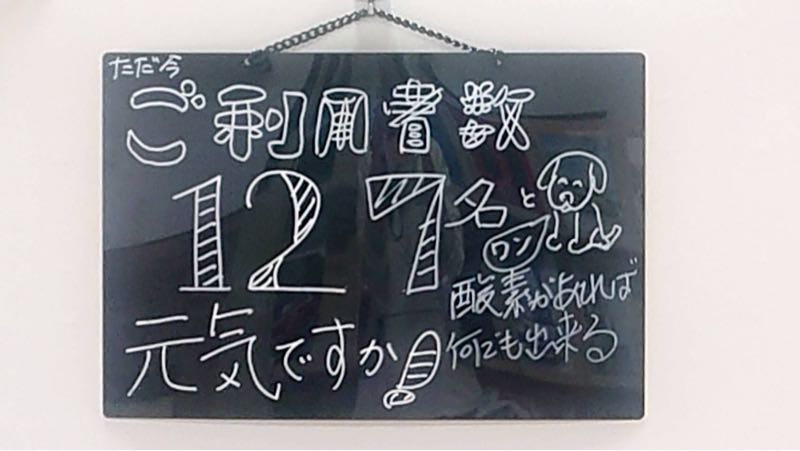 ただ今
ご利用書数
127名と
ワン
酸素があれば
何でも出来る
元気ですか!